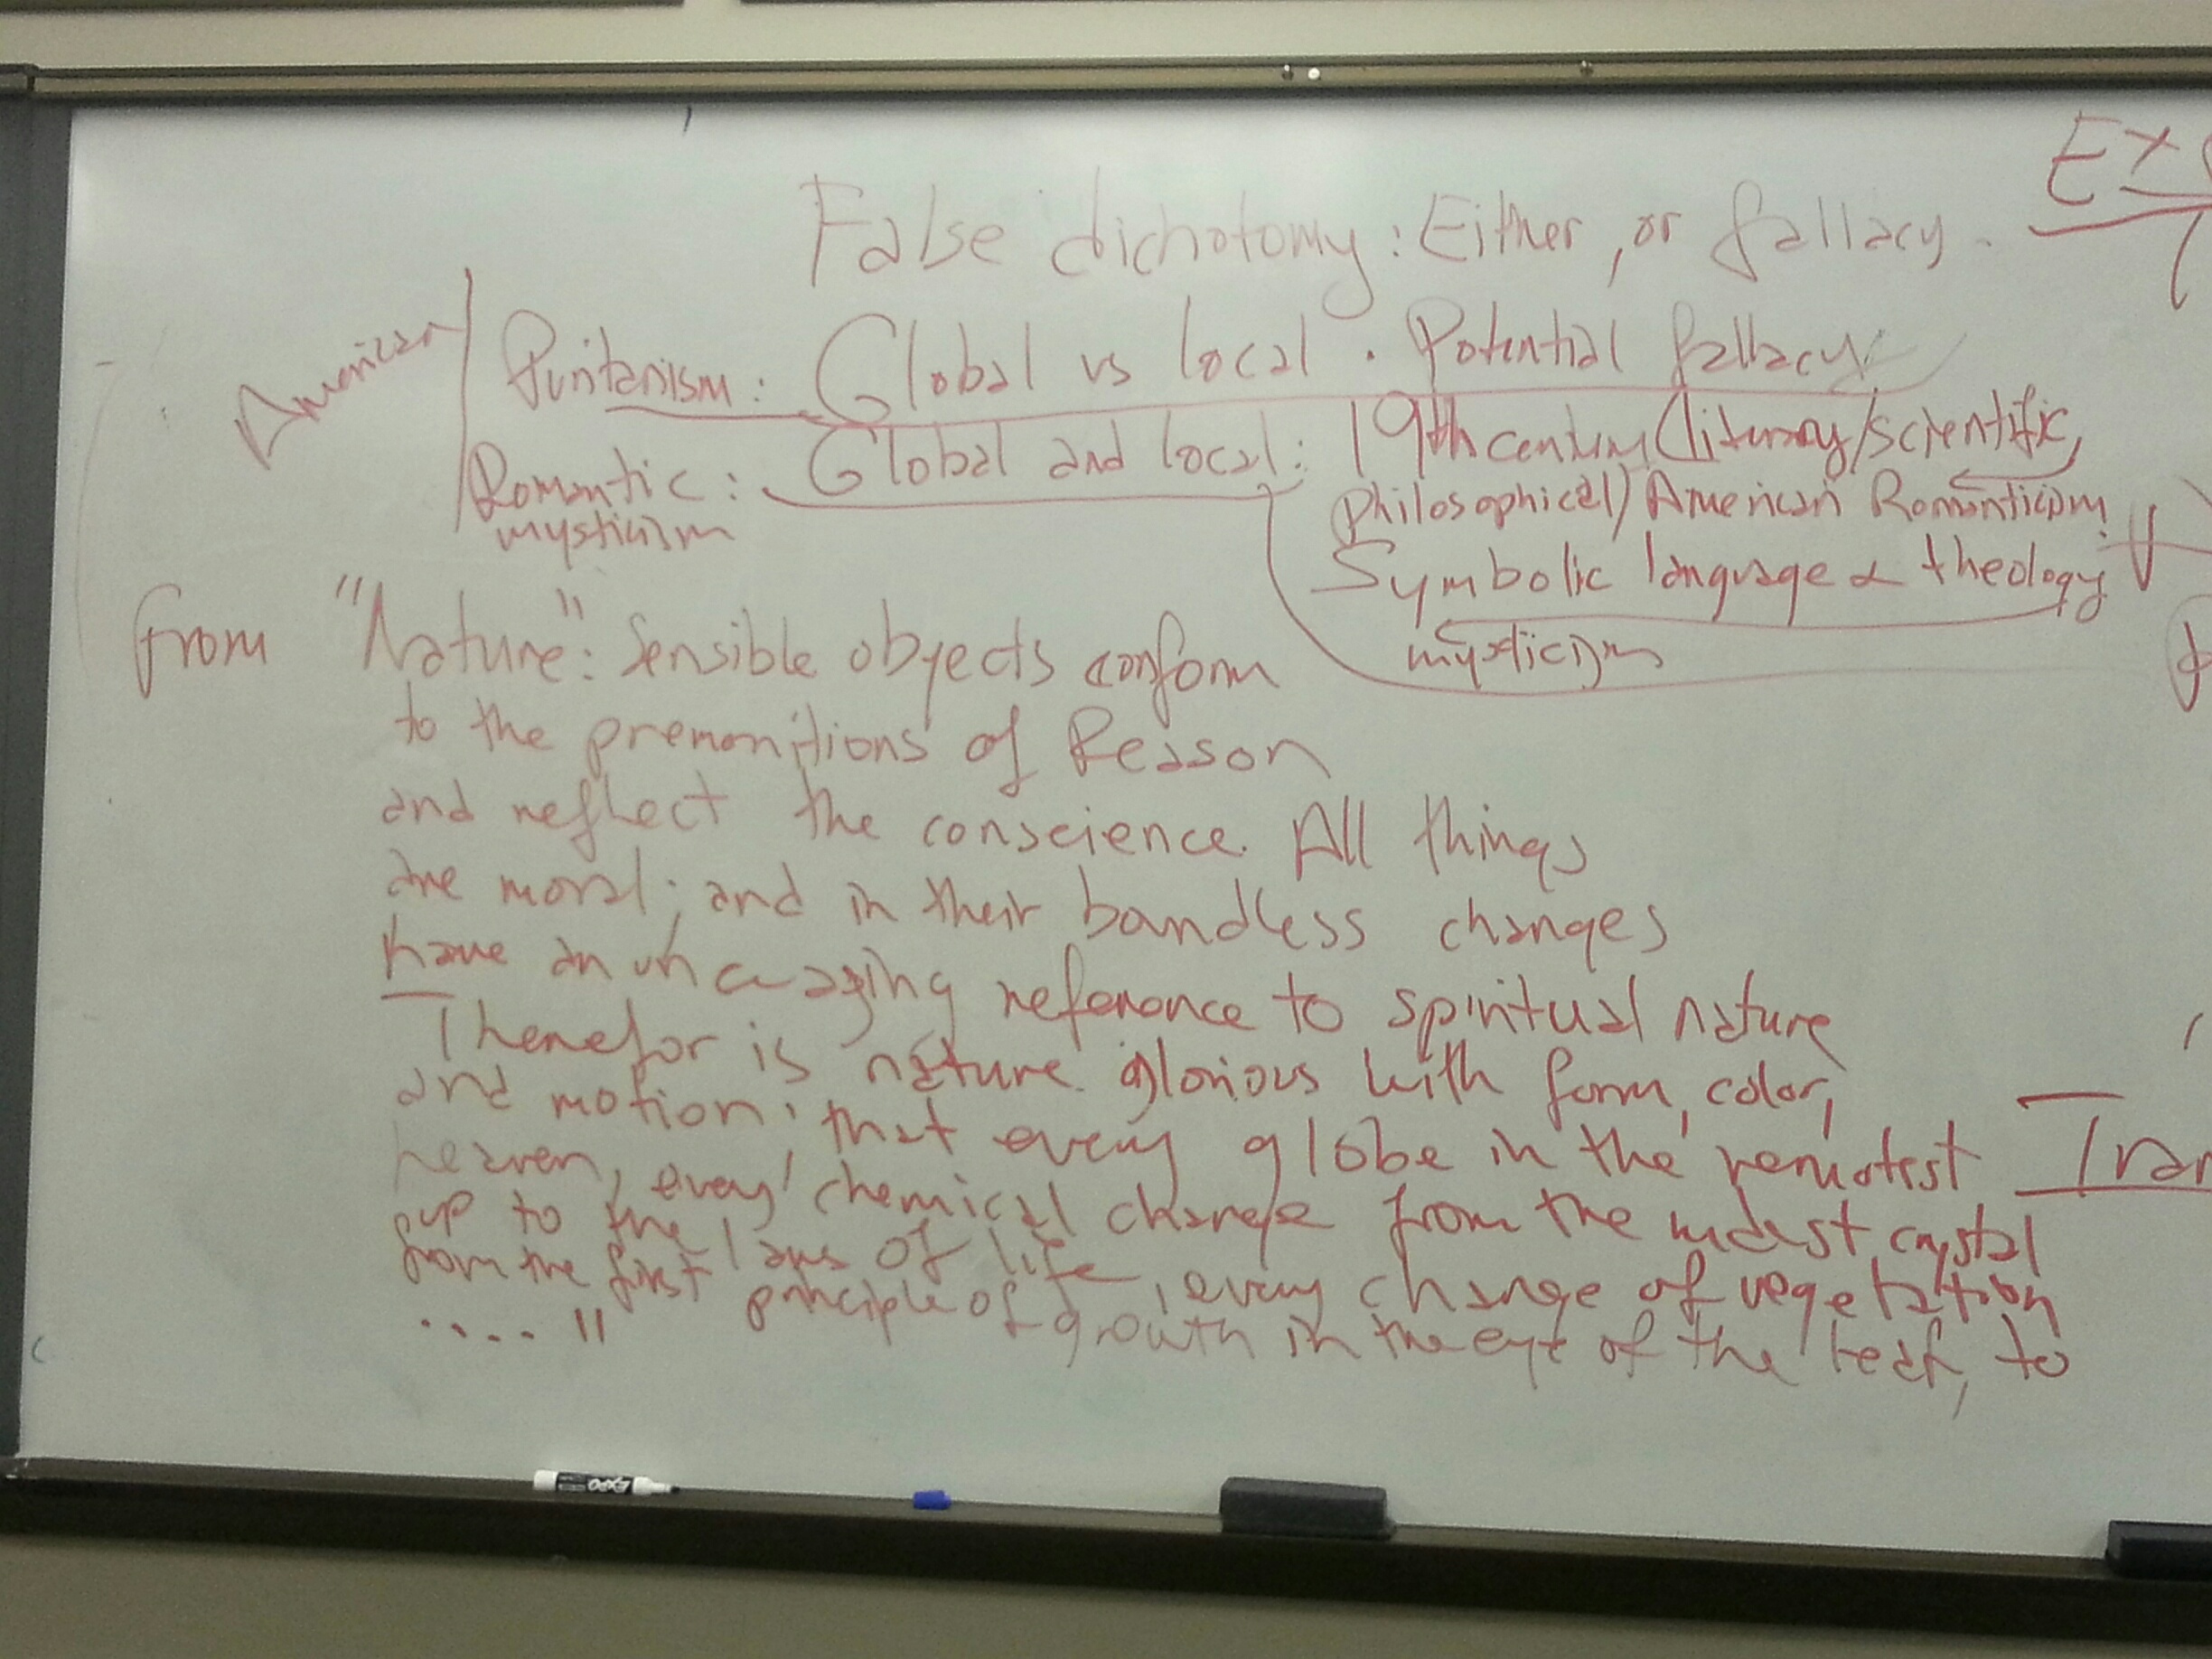 False dichotomy: Either, or fallacy.
Exp
American
Puritanism: Global vs local. Potential fallacy
Romantic: Global and local: 19th century (literary/scientific,
mysticism
philosophical) American Romanticism
Symbolic language & theology
mysticism
from "Nature": Sensible objects conform
to the premonitions of Reason
and reflect the conscience. All things
are moral; and in their boundless changes
have an unceasing reference to spiritual nature
Therefor is nature glorious with form, color,
and motion; that every globe in the remotest
heaven, every chemical change from the rudest crystal
up to the laws of life, every change of vegetation
from the first principle of growth in the eye of the leaf, to
...."
Tran
EXPO